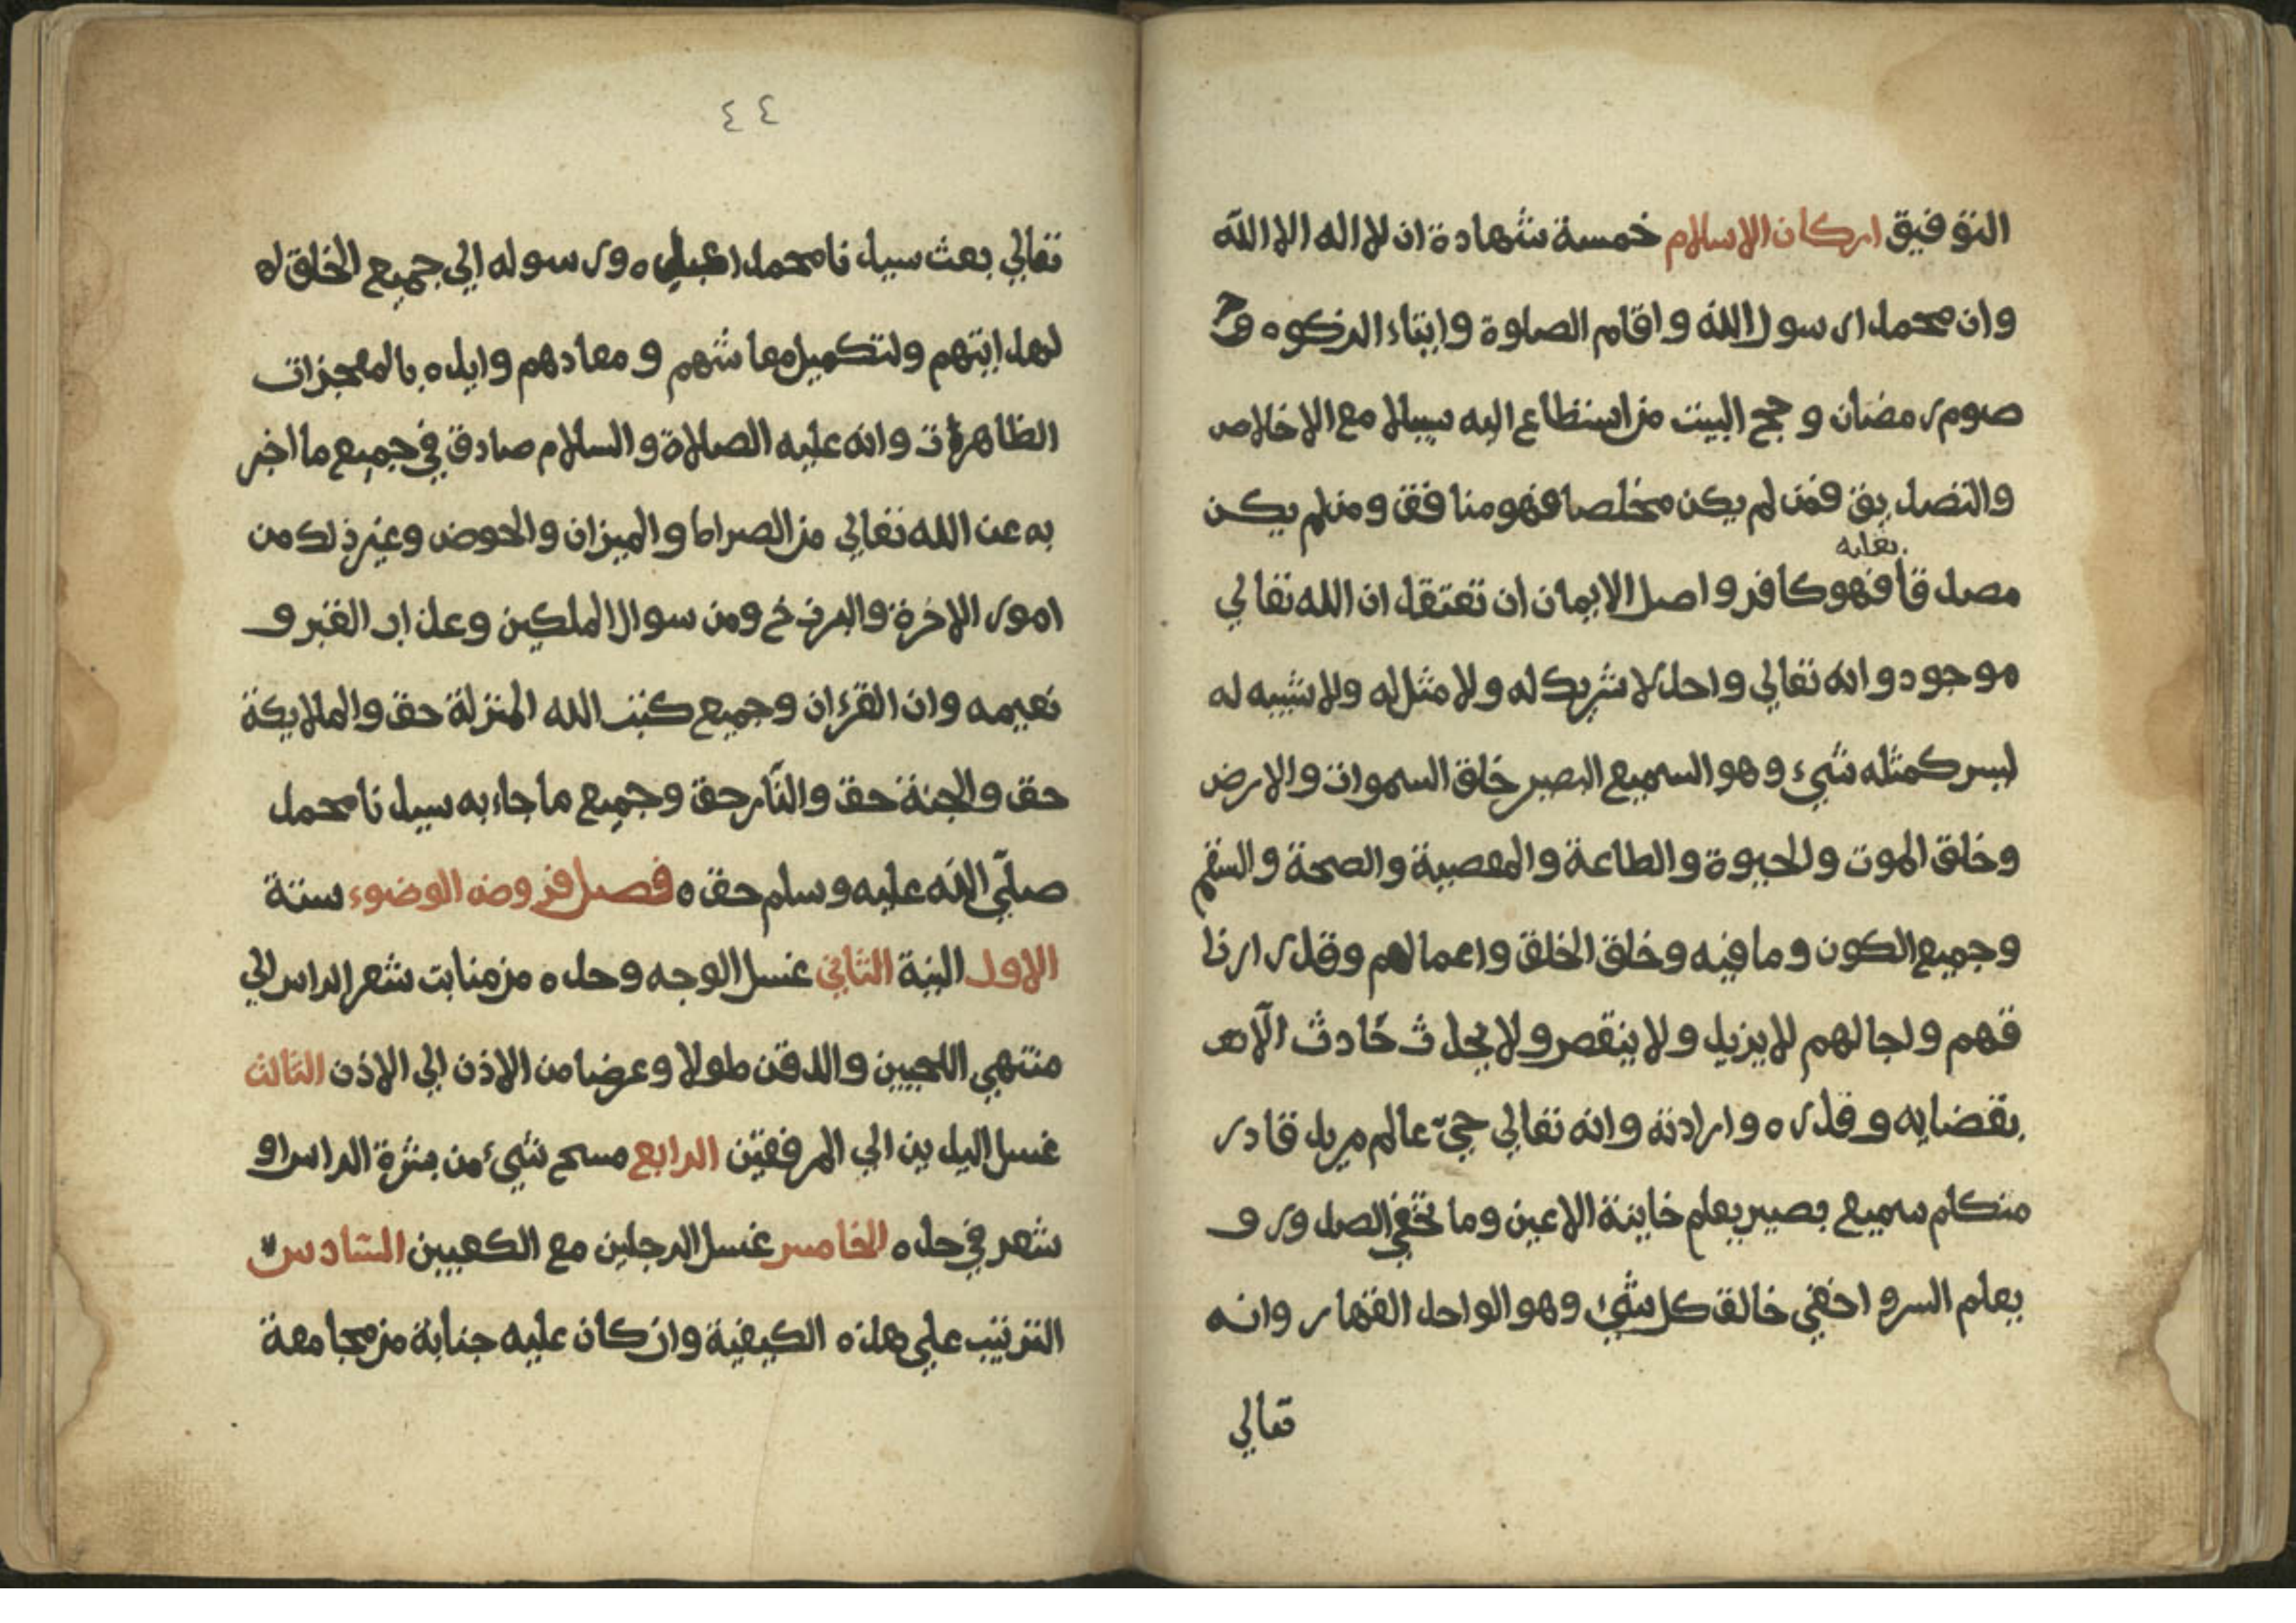 التوفيق اركان الاسلام خمسة شهادة ان لا اله الا الله
وان محمدا رسول الله واقام الصلوة وايتاء الزكوه و
صوم رمضان وحج البيت من استطاع اليه سبيلا مع الاخلاص
والتصديق فمن لم يكن مخلصا فهو منافق ومن لم يكن
بقلبه
مصدقا فهو كافر واصل الايمان ان تعتقد ان الله تعالي
موجود وانه تعالي واحد لا شريك له ولا مثل له ولا شبيه له
ليس كمثله شيء وهو السميع البصير خلق السموات والارض
وخلق الموت والحيوة والطاعة والمعصية والصحة والسقم
وجميع الكون وما فيه وخلق الخلق واعمالهم وقدر ارزا
قهم واجالهم لا يزيد ولا ينقص ولا يحدث حادث الا
بقضايه وقدره وارادته وانه تعالي حيّ عالم مريد قادر
متكلم سميع بصير يعلم خاينة الاعين وما تخفي الصدور و
يعلم السر واخفي خالق كل شيء وهو الواحد القهار وانه
تعالي
٤٤
تعالي بعث سيدنا محمدا عبده ورسوله الي جميع الخلق
لهدايتهم ولتكميل معاشهم ومعادهم وايده بالمعجزات
الظاهرات وانه عليه الصلاة والسلام صادق في جميع ما اخبر
به عن الله تعالي من الصراط والميزان والحوض وغير ذلك من
امور الاخرة والبرزخ ومن سوال الملكين وعذاب القبر و
نعيمه وان القرءان وجميع كتب الله المنزلة حق والملايكة
حق والجنة حق والنّار حق وجميع ما جاء به سيدنا محمد
صلّي الله عليه وسلم حق ه فصل فروض الوضوء ستة
الاول النية الثاني غسل الوجه وحده من منابت شعر الراس الي
منتهي اللحيين والذقن طولا وعرضا من الاذن الي الاذن الثالث
غسل اليدين الي المرفقين الرابع مسح شيء من بشرة الراس او
شعر في حده الخامس غسل الرجلين مع الكعبين السّادس
الترتيب علي هذه الكيفية وان كان عليه جنابة من مجامعة